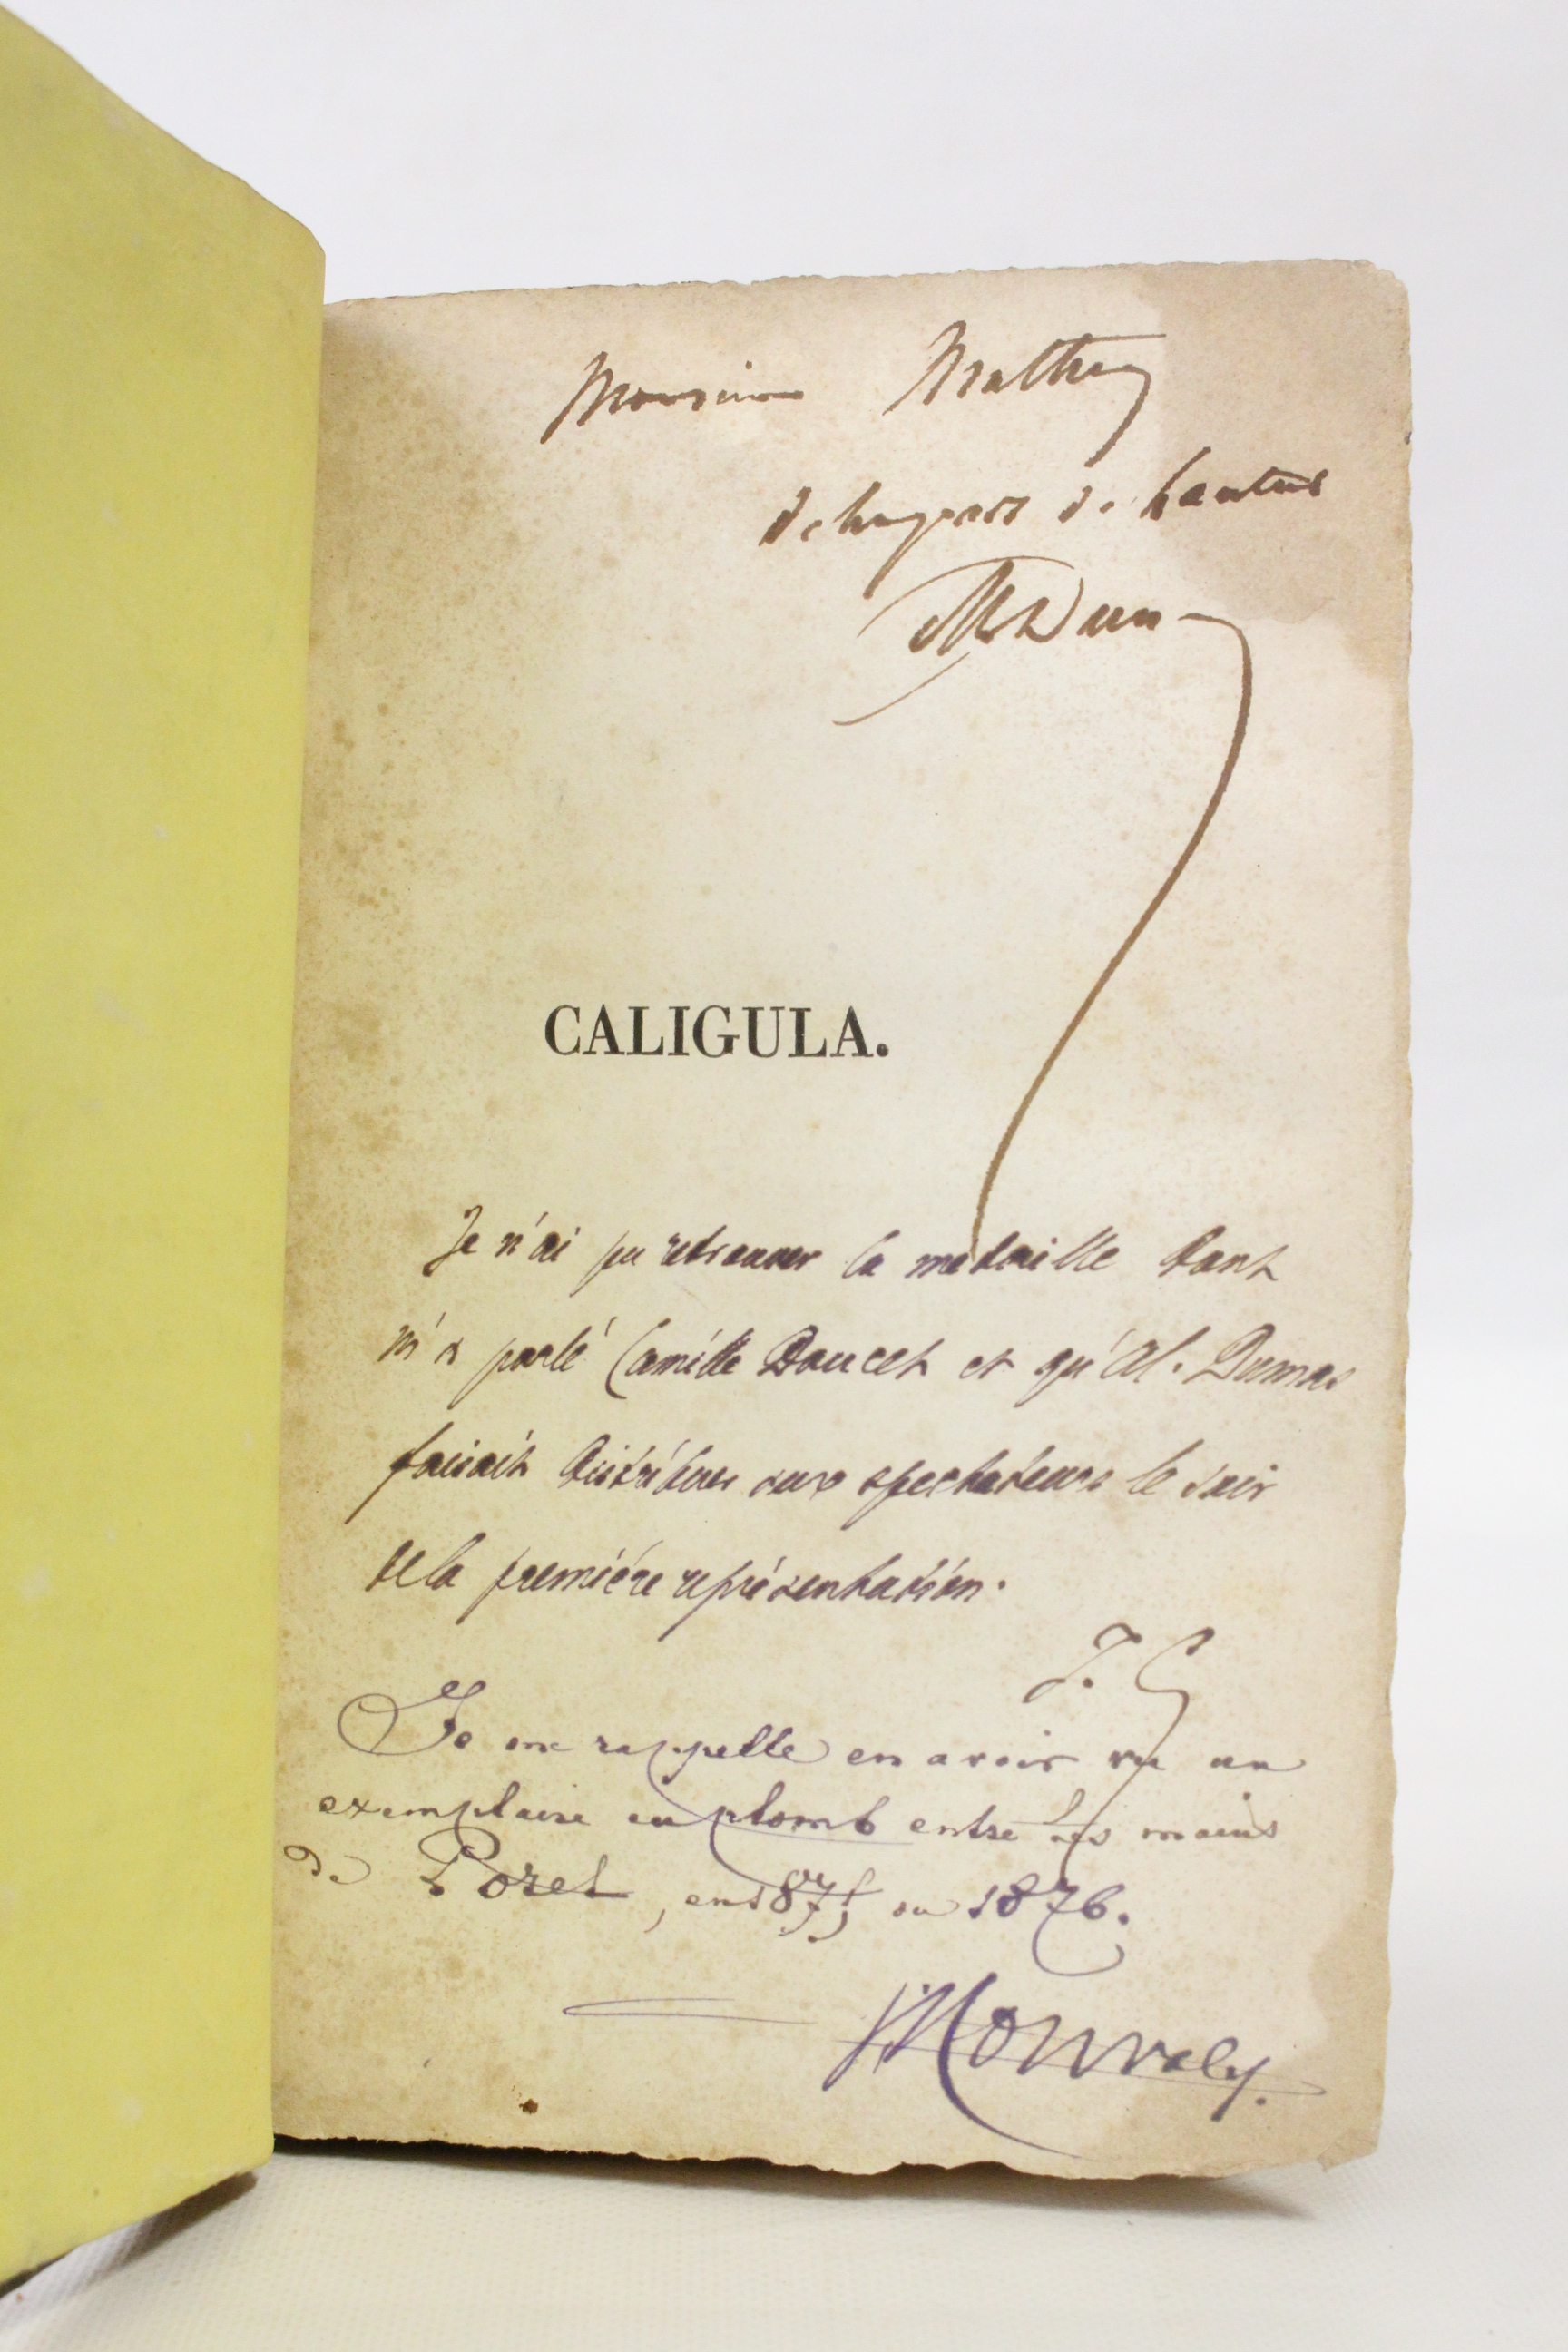 Monsieur Mathey
de la part de l'auteur
Al Dumas
CALIGULA.
Je n'ai pu retrouver la médaille dont
m'a parlé Camille Doucet et qu'Al. Dumas
faisait distribuer aux spectateurs le soir
de la première représentation.
J. C
Je me rappelle en avoir vu un
exemplaire en plomb entre les mains
de Porel, en 1875 ou 1876.
Monval.